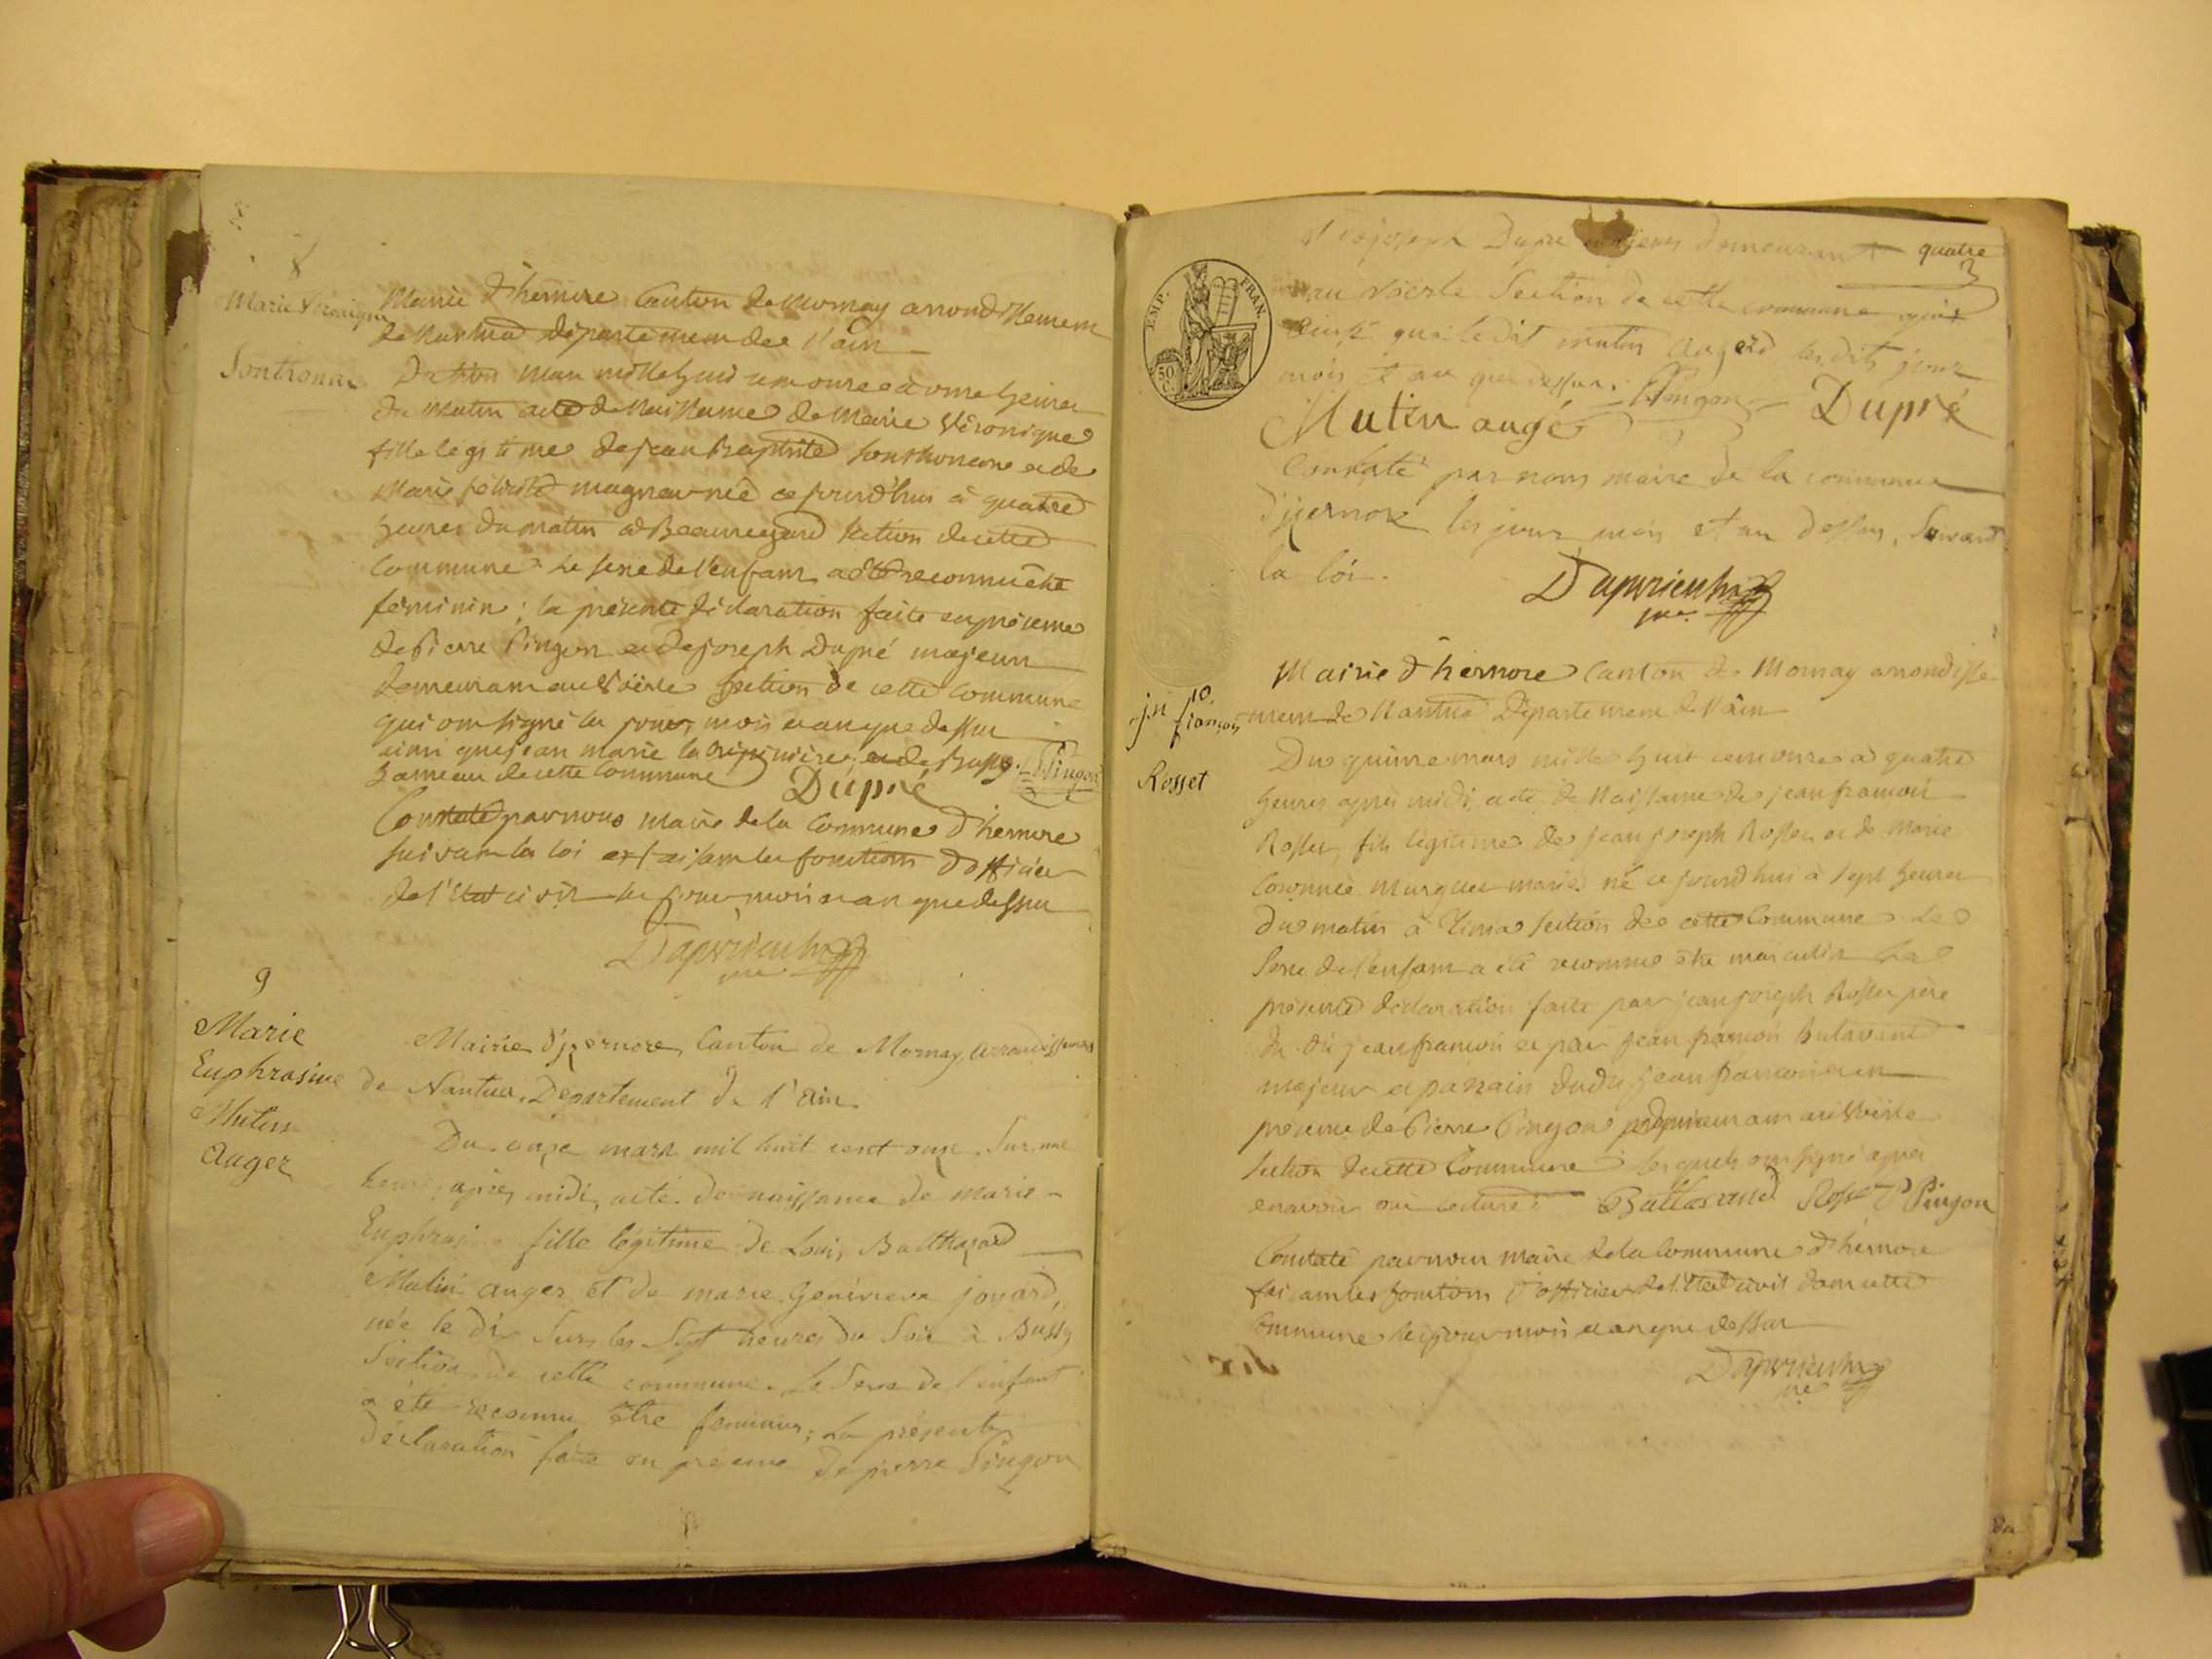 8
Marie Véronique
Sonthonax
Mairie d'hernore Canton de Mornay arrondissement
de Nantua département de l'ain
Du mars mille huit cent onze à onze heures
du matin acte de Naissance de Marie Véronique
fille legitime de jean Baptiste Sonthonaxe et de
Marie félicité magnea née ce jourd'hui à quatre
heures du matin à Beauregard section de cette
Commune le sexe de l'enfant a été reconnu être
féminin ; la présente déclaration faite en présence
de Pierre Pingon et de joseph Dupré majeurs
demeurant au Voërle section de cette Commune
qui ont signé les jour, mois et an que dessus
ainsi que jean marie et de Bussy Pingon
hameau de cette Commune Dupré
Constaté par nous maire de la Commune d'hernore
suivant la loi et faisant les fonctions d'officier
de l'Etat civil les jour mois et an que dessus
9
Marie
Euphrasine
Mutin
Auger
Mairie d'jzernore, Canton de Mornay, arrondissement
de Nantua, Département de l'Ain.
Du onze mars mil huit cent onze, Sur une
heure après midi, acte de naissance de marie
Euphrasine fille légitime de Louis Balthazard
Mutin auger et de marie Genevieve jouard,
née le dix Sur les Sept heures du Soir à Bussy
Section de cette commune. Le Sexe de l'enfant
a été reconnu être feminin ; La présente
déclaration faite en présence de pierre Pingon
quatre
EMP. FRAN.
50 C.
et de joseph Dupré majeurs demeurant
au Voërle Section de cette commune
ainsi que ledit mutin auger les dits jour
mois et an que dessus. Pingon Dupré
Mutin augé
Constaté par nous maire de la commune
d'jzernore les jour mois et an dessus, Suivant
la loi.
10
jn françois
Rosset
Mairie d'hernore Canton de Mornay arrondisse-
ment de Nantua Département de l'Ain
Du quinze mars mille huit cent onze à quatre
heures après midi, acte de Naissance de jean françois
Rosset, fils légitime de jean joseph Rosset et de Marie
né ce jourd'hui à sept heures
du matin à section de cette Commune. Le
Sexe de l'enfant a été reconnu être masculin La
présente déclaration faite par jean joseph Rosset père
du dit jean françois et par jean françois
majeur et parrain dudit jean françois et en
présence de Pierre Pingon demeurant au Voërle
section de cette Commune lesquels ont signé après
en avoir ouï lecture Rosset P Pingon
Constaté par nous maire de la Commune d'hernore
faisant les fonctions d'officier de l'Etat civil dans cette
Commune les jour mois et an que dessus